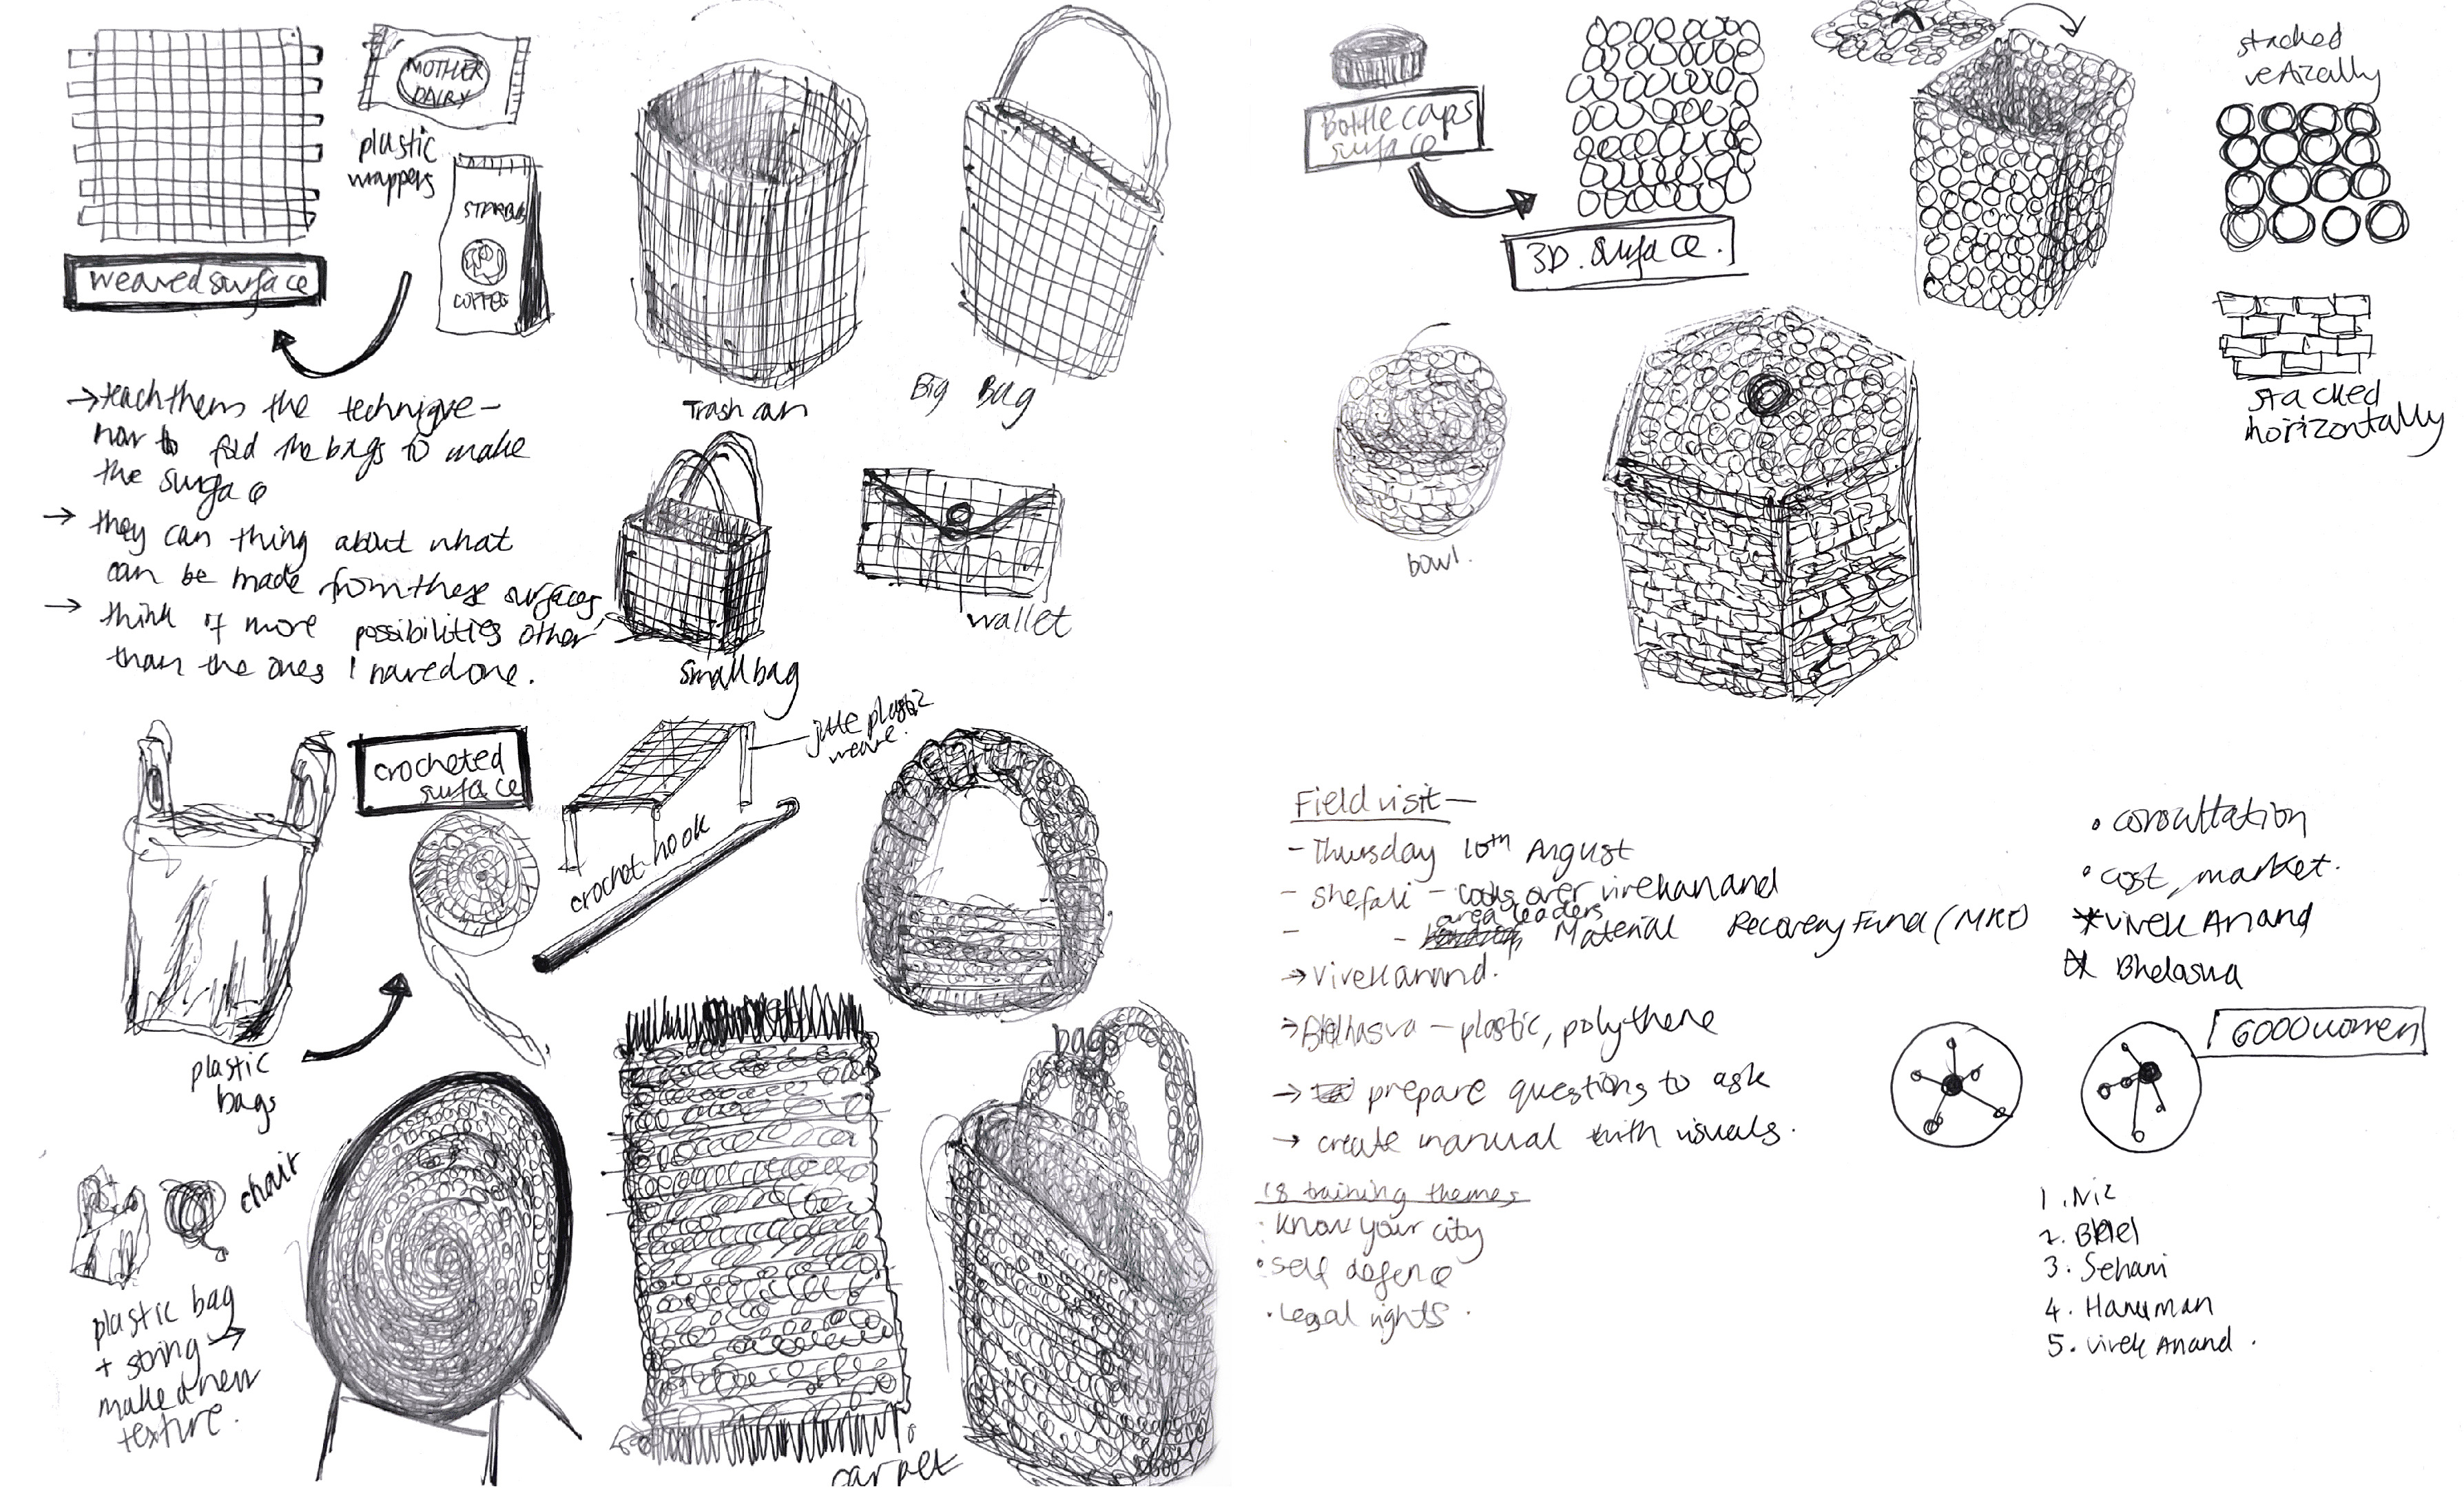 MOTHER
DAIRY
plastic
wrappers
STARBU
COFFEE
weaved surface
→ teach them the technique –
how to fold the bags to make
the surface
→ they can thing about what
can be made from these surfaces
→ think of more possibilities other
than the ones I haved one.
Trash can
Big Bag
small bag
wallet
crocheted
surface
jute plastic
weave.
crochet hook
plastic
bags
bags
chair
plastic bag
+ string →
make a new
texture.
carpet
Bottle caps
surface
3D. surface.
stacked
vertically
stacked
horizontally
bowl.
Field visit –
- Thursday 10th August
- Shefali – looks over vivekanand
area leaders
- - Material Recovery Fund (MRF)
→ Vivekanand.
→ Bhalhasva – plastic, polythene
→ prepare questions to ask
→ create manual with visuals.
18 training themes
· Know your city
· self defence
· Legal rights.
• consultation
• cost, market.
* Vivek Anand
Bhelasva
6000 women
2. Bhel
3. Sehani
4. Hanuman
5. Vivek Anand.